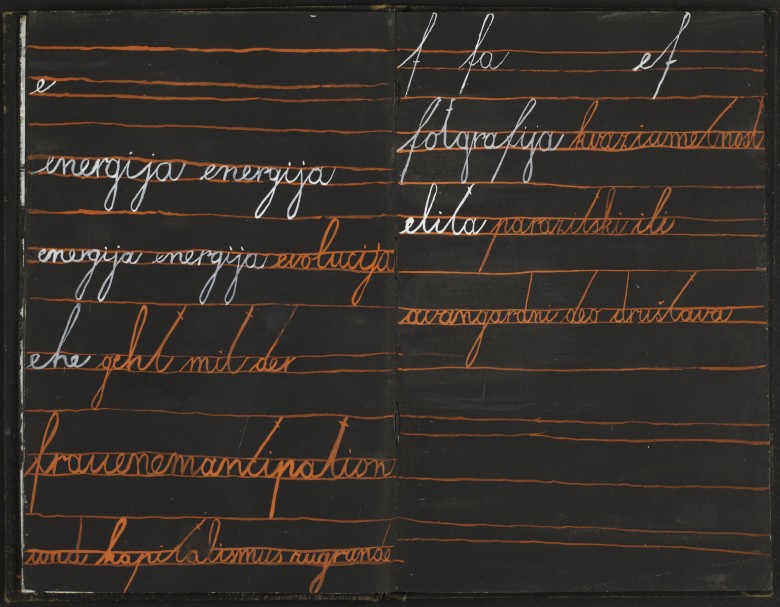 e
energija energija
energija energija evolucija
ehe geht mit der
frauenemancipation
und kapitalismus zugrunde
f fa ef
fotgrafija kvaziumetnost
elita parazitski ili
avangardni deo društava